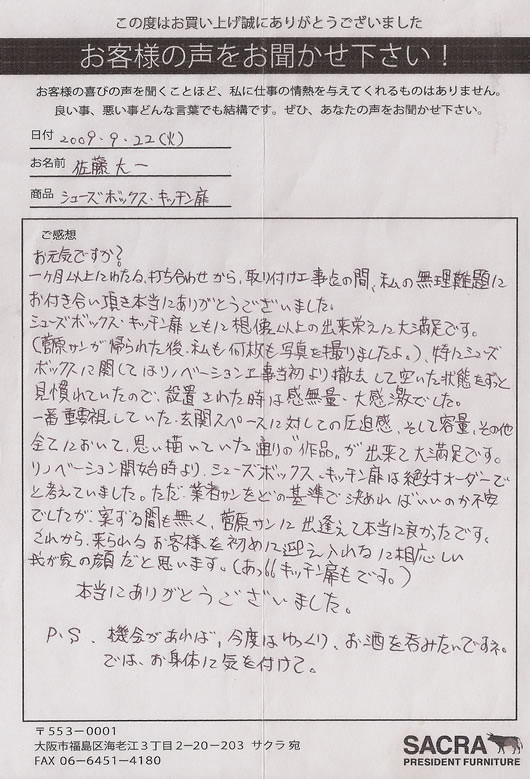 この度はお買い上げ誠にありがとうございました
お客様の声をお聞かせ下さい！
お客様の喜びの声を聞くことほど、私に仕事の情熱を与えてくれるものはありません。
良い事、悪い事どんな言葉でも結構です。ぜひ、あなたの声をお聞かせ下さい。
日付 2009.9.22(火)
お名前 佐藤大一
商品 シューズボックス・キッチン扉
ご感想
お元気ですか？
一ヶ月以上にわたる、打ち合わせから、取り付け工事迄の間、私の無理難題に
お付き合い頂き本当にありがとうございました。
シューズボックス・キッチン扉ともに想像以上の出来栄えに大満足です。
(菅原サンが帰られた後、私も何枚も写真を撮りましたよ。)、特にシューズ
ボックスに関してはリノベーション工事当初より撤去して空いた状態をずっと
見慣れていたので、設置された時は感無量・大感激でした。
一番重要視していた、玄関スペースに対しての圧迫感、そして容量、その他
全てにおいて、思い描いていた通りの"作品"が出来て大満足です。
リノベーション開始時より、シューズボックス、キッチン扉は絶対オーダーで
と考えていました。ただ、業者サンをどの基準で決めればいいのか不安
でしたが、案ずる間も無く、菅原サンに出逢えて本当に良かったです。
これから、来られるお客様を初めに迎え入れるに相応しい
我が家の顔だと思います。(あっ66キッチン扉もです。)
本当にありがとうございました。
P.S. 機会があれば、今度はゆっくり、お酒を呑みたいですネ。
では、お身体に気を付けて。
〒553－0001
大阪市福島区海老江3丁目2－20－203 サクラ宛
FAX 06-6451-4180
SACRA
PRESIDENT FURNITURE